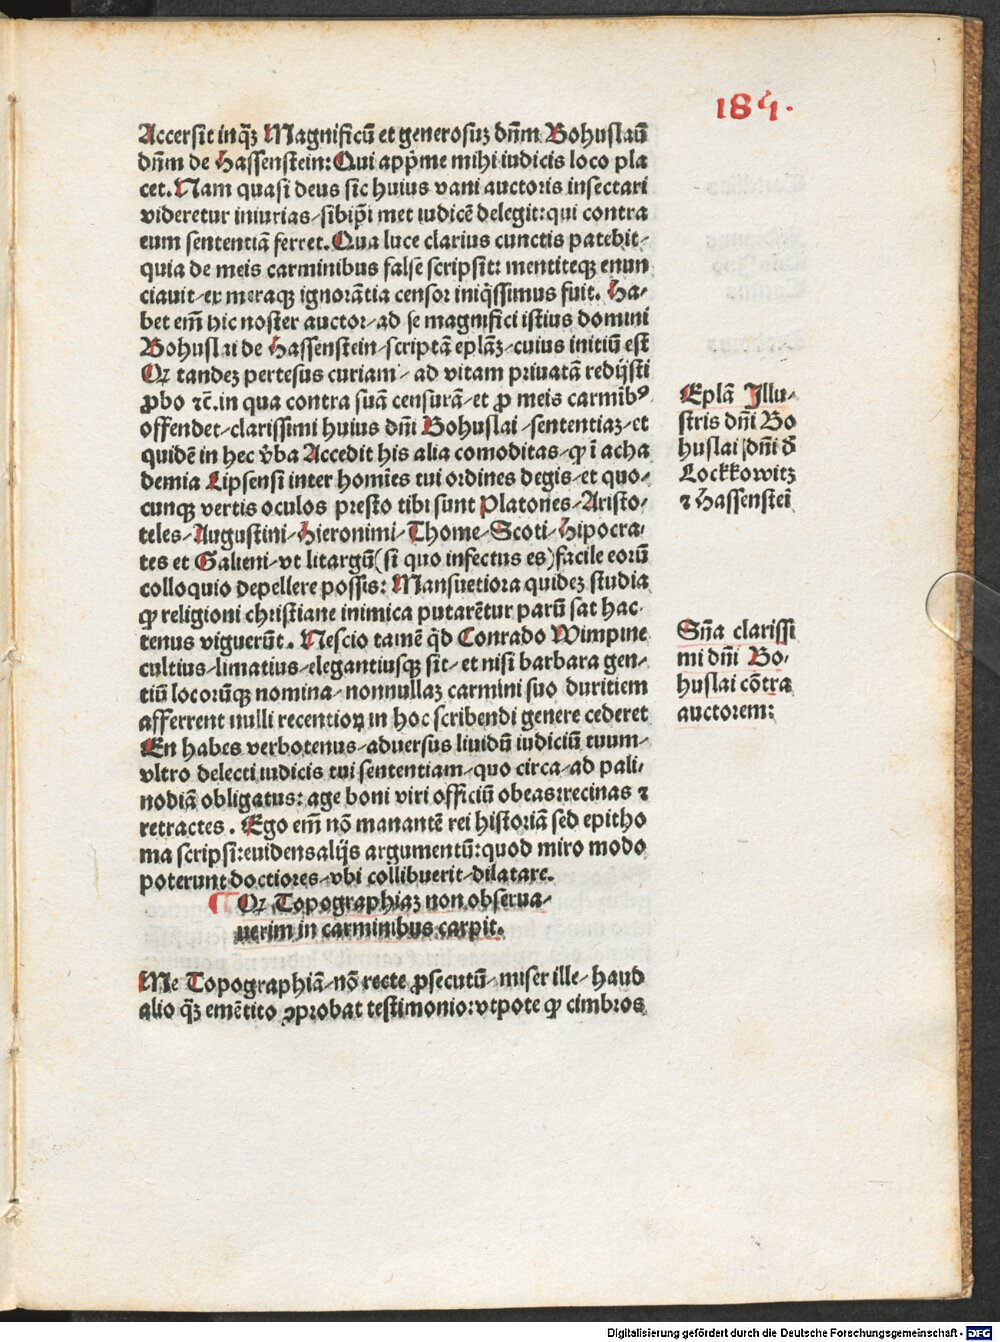 184.
Accersit inqꝫ Magnificū et generosuꝫ dn̄m Bohuslaū
dn̄m de Hassenstein: Qui app̄me mihi iudicis loco pla
cet. Nam quasi deus sic huius vani auctoris insectari
videretur iniurias/ sibip̄i met iudicē delegit: qui contra
eum sententiā ferret. Qua luce clarius cunctis patebit/
quia de meis carminibus false scripsit: mentiteqꝫ enun
ciauit/ ex meraqꝫ ignorātia censor iniq̄ssimus fuit. Ha/
bet em̄ hic noster auctor/ ad se magnifici istius domini
Bohuslai de Hassenstein/ scriptā eplāꝫ/ cuius initiū est
Qꝫ tandeꝫ pertesus curiam/ ad vitam priuatā redijsti
ꝓbo ⁊c̄. in qua contra suā censurā/ et ꝓ meis carmīb⁹
offendet/ clarissimi huius dn̄i Bohuslai/ sententiaꝫ/ et
quidē in hec v̄ba Accedit his alia comoditas/ ꝙ ī acha
demia Lipsensi inter homīes tui ordines degis/ et quo/
cunqꝫ vertis oculos presto tibi sunt Platones/ Aristo/
teles/ Augustini/ Hieronimi/ Thome/ Scoti/ Hipocra/
tes et Galieni/ vt litargū (si quo infectus es) facile eorū
colloquio depellere possis: Mansuetiora quideꝫ studia
ꝙ religioni christiane inimica putarētur parū sat hac/
tenus viguerūt. Nescio tamē q̄d Conrado Wimpine
cultius/ limatius/ elegantiusqꝫ sit/ et nisi barbara gen/
tiū locorūqꝫ nomina/ nonnullaꝫ carmini suo duritiem
afferrent nulli recentioꝝ in hoc scribendi genere cederet
En habes verbotenus/ aduersus liuidū iudiciū tuum/
vltro delecti iudicis tui sententiam/ quo circa/ ad pali/
nodiā obligatus: age boni viri officiū obeas: recinas ⁊
retractes. Ego em̄ nō manantē rei historiā sed epitho
ma scripsi: euidens alijs argumentū: quod miro modo
poterunt doctiores/ vbi collibuerit/ dilatare.
¶ Qꝫ Topographiaꝫ non obserua/
uerim in carminibus carpit.
Me Topographiā/ nō recte ꝓsecutū/ miser ille/ haud
alio qꝫ emētito ꝯprobat testimonio: vtpote ꝙ cimbros
Eplā Illu/
stris dn̄i Bo
huslai dn̄i d̄
Lockkowitz
⁊ Hassensteī
Sn̄a clarissi
mi dn̄i Bo/
huslai cōtra
auctorem:
Digitalisierung gefördert durch die Deutsche Forschungsgemeinschaft - DFG